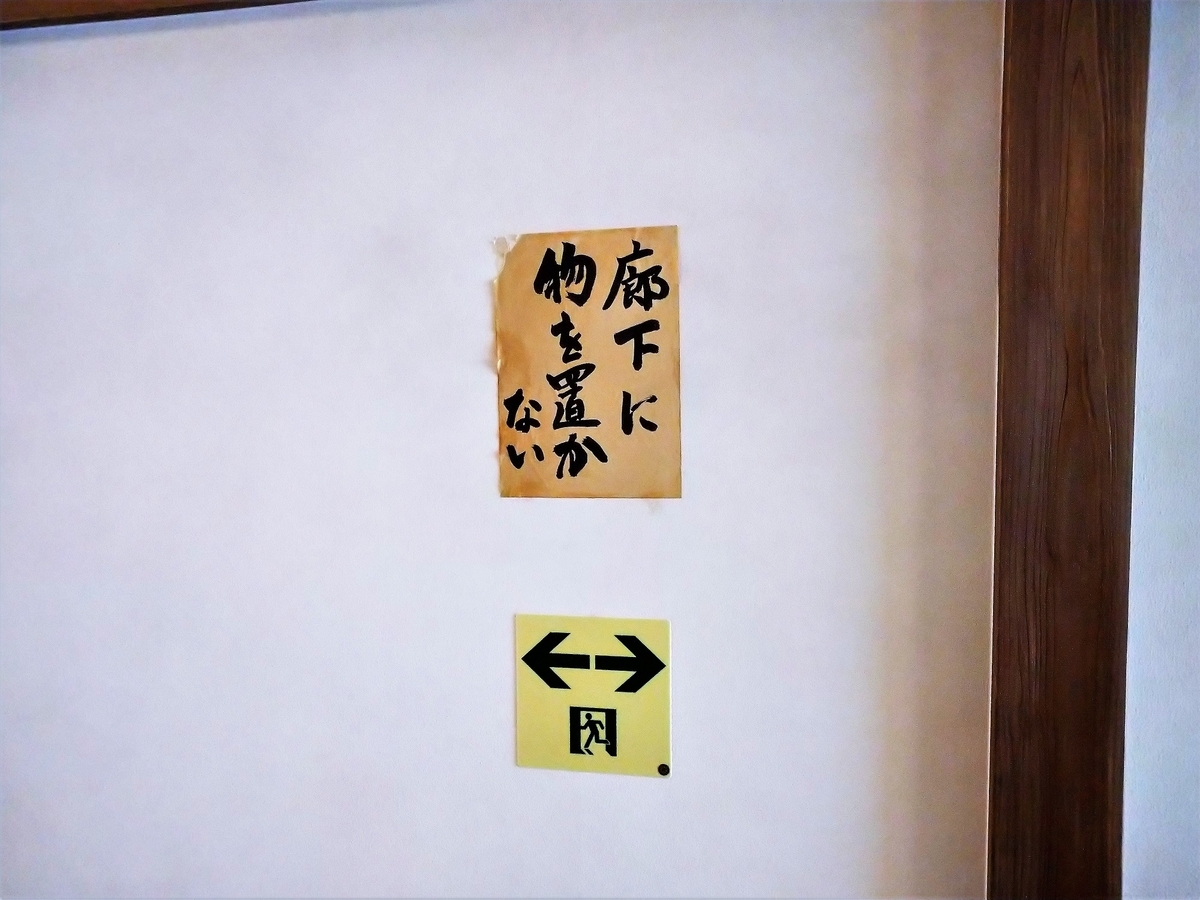 廊下に
物を置か
ない